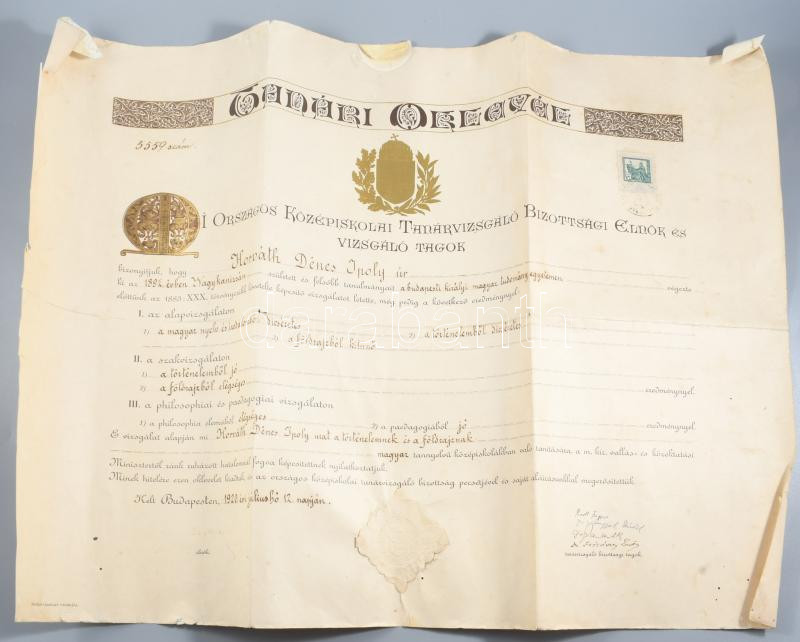 TANÁRI OKLEVÉL
5559 szám.
MI ORSZÁGOS KÖZÉPISKOLAI TANÁRVIZSGÁLÓ BIZOTTSÁGI ELNÖK ÉS
VIZSGÁLÓ TAGOK
bizonyítjuk, hogy Horváth Dénes Ipoly úr
ki az 1892. évben Nagykanizsán született és felsőbb tanulmányait a budapesti királyi magyar tudományegyetemen végezte
előttünk az 1883: XXX. törvénycikk követelte képesítő vizsgálatot letette, még pedig a következő eredménynyel:
I. az alapvizsgálaton
1) a magyar nyelv és irodalomból dicséretes 2) a történelemből dicséretes
3) a földrajzból kitünő
II. a szakvizsgálaton
1) a történelemből jó
2) a földrajzból elégséges eredménynyel.
III. a philosophiai és paedagogiai vizsgálaton
1) a philosophia elemeiből elégséges 2) a paedagogiából jó eredménynyel.
E vizsgálat alapján mi Horváth Dénes Ipoly urat a történelemnek és a földrajznak
magyar tannyelvű középiskolákban való tanítására, a m. kir. vallás- és közoktatási
Ministertől ránk ruházott hatalomnál fogva képesítettnek nyilatkoztatjuk.
Minek hitelére ezen oklevelet kiadtuk és az országos középiskolai tanárvizsgáló bizottság pecsétjével és saját aláírásunkkal megerősítettük.
Kelt Budapesten, 1920. évi julius hó 12. napján.
elnök.
tanárvizsgáló bizottsági tagok.
darabanth